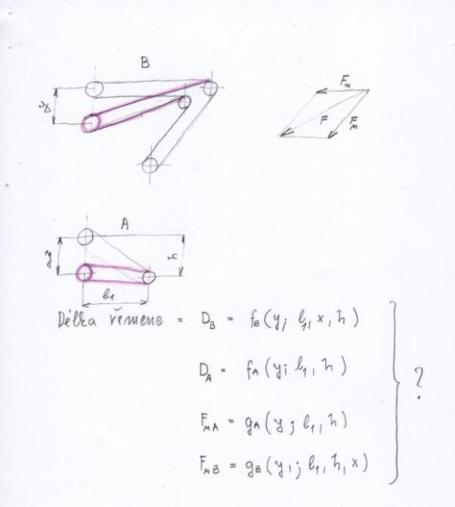 B
Fₘ
F
Fₘ
A
y
b₁
Délka řemene = D_B = f_B (y; l₁, x, h)
D_A = f_A (y; l₁, h)
F_mA = g_A (y; l₁, h)
F_mB = g_B (y; l₁, h, x)
?